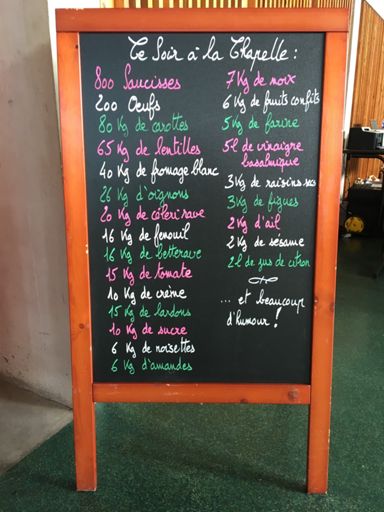 Ce Soir à la Chapelle :
800 Saucisses
200 Oeufs
80 Kg de carottes
65 Kg de lentilles
40 Kg de fromage blanc
26 Kg d'oignons
20 Kg de céleri rave
16 Kg de fenouil
16 Kg de betterave
15 Kg de tomate
10 Kg de crème
15 Kg de lardons
10 Kg de sucre
6 Kg de noisettes
6 Kg d'amandes
7 Kg de noix
6 Kg de fruits confits
5 Kg de farine
5 l de vinaigre
balsamique
3 Kg de raisins secs
3 Kg de figues
2 Kg d'ail
2 Kg de sésame
2 l de jus de citron
... et beaucoup
d'humour !